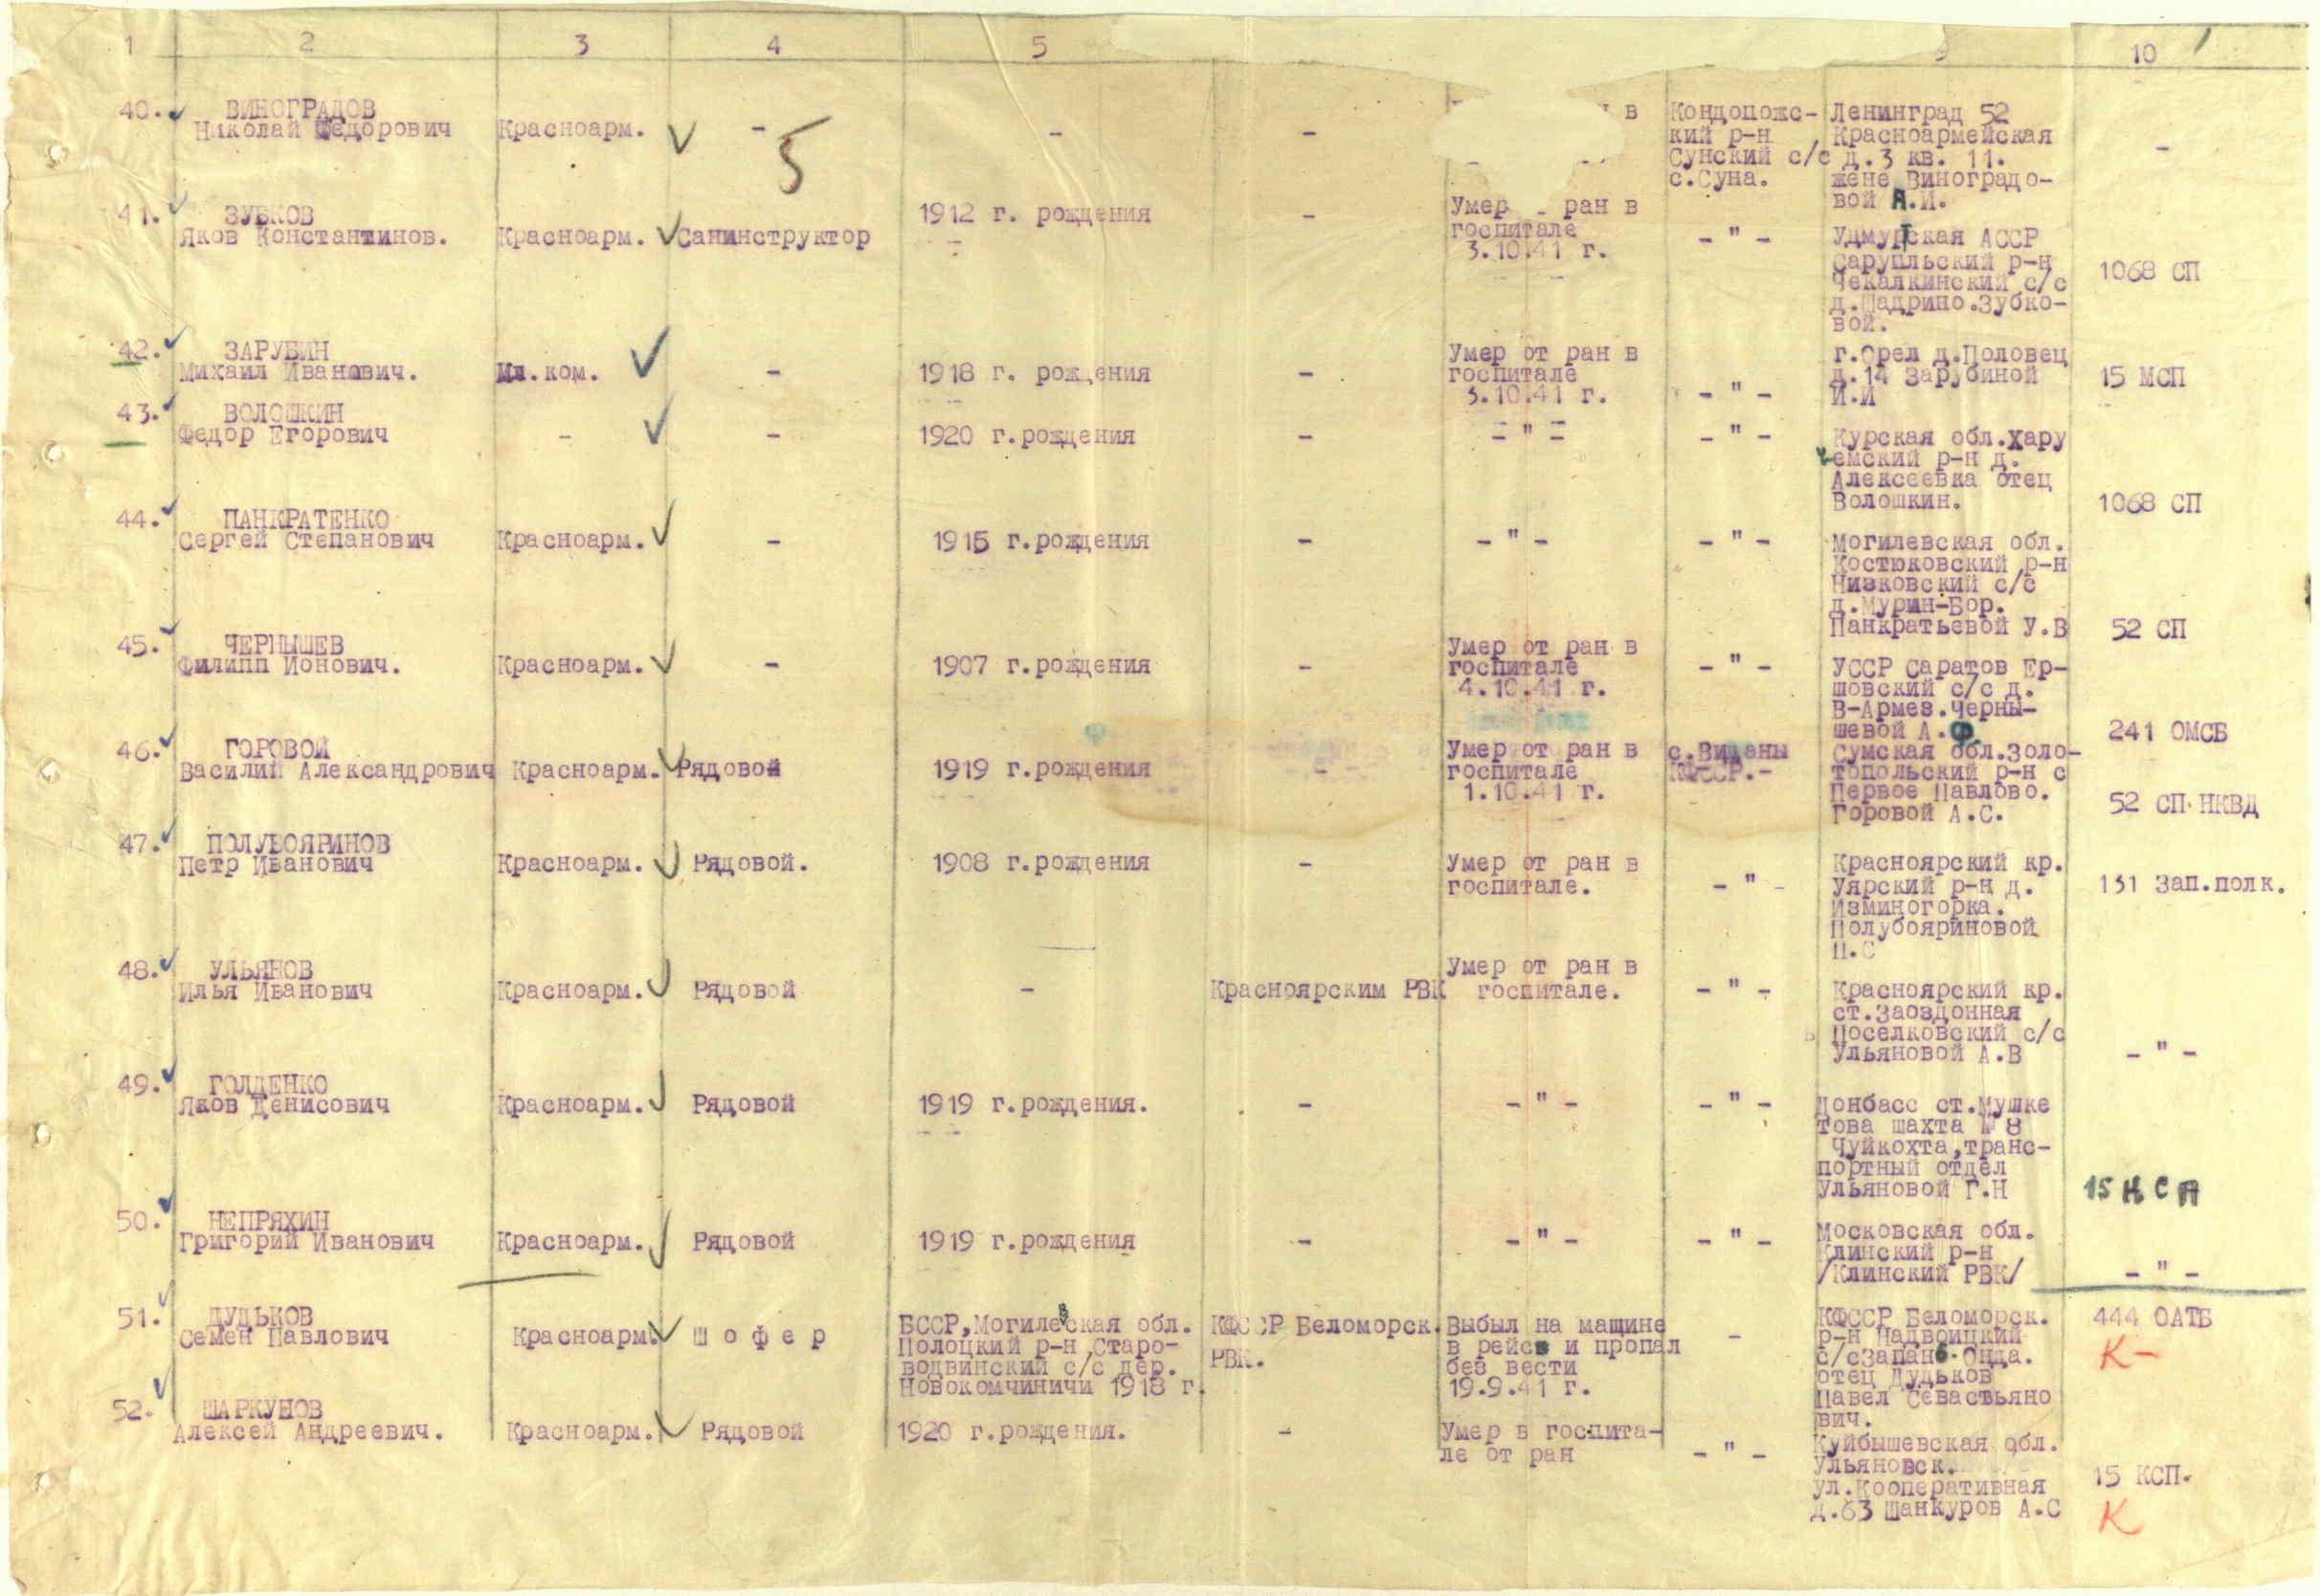 1 2 3 4 5 9 10
40. ВИНОГРАДОВ
Николай Федорович Красноарм. - - -
в
Кондопожс-
кий р-н
Сунский с/с
с.Суна.
Ленинград 52
Красноармейская
д.3 кв. 11.
жене Виноградо-
вой А.И.
-
5
41. ЗУБКОВ
Яков Константинов. Красноарм. Санинструктор
1912 г. рождения
-
Умер ран в
госпитале
3.10.41 г.
- " -
Удмуртская АССР
Сарупльский р-н
Чекалкинский с/с
д.Шадрино.Зубко-
вой.
1068 СП
42. ЗАРУБИН
Михаил Иванович. Мл.ком. - 1918 г. рождения -
Умер от ран в
госпитале
3.10.41 г.
- " -
г.Орел д.Половец
д.14 Зарубиной
И.И
15 МСП
43. ВОЛОШКИН
Федор Егорович - - 1920 г.рождения - - " - - " -
Курская обл.Хару
емский р-н д.
Алексеевка отец
Волошкин.
1068 СП
44. ПАНКРАТЕНКО
Сергей Степанович Красноарм. - 1915 г.рождения - - " - - " -
Могилевская обл.
Костюковский р-н
Низковский с/с
д.Мурин-Бор.
Панкратьевой У.В
52 СП
45. ЧЕРНЫШЕВ
Филипп Ионович. Красноарм. - 1907 г.рождения -
Умер от ран в
госпитале
4.10.41 г.
- " -
УССР Саратов Ер-
шовский с/с д.
В-Армез.Черны-
шевой А.Ф
241 ОМСБ
46. ГОРОВОЙ
Василий Александрович Красноарм. Рядовой 1919 г.рождения -
Умер от ран в
госпитале
1.10.41 г.
с.Виданы
КФССР.-
Сумская обл.Золо-
топольский р-н с
Первое Павлово.
Горовой А.С.
52 СП НКВД
47. ПОЛУБОЯРИНОВ
Петр Иванович Красноарм. Рядовой. 1908 г.рождения -
Умер от ран в
госпитале.
- " -
Красноярский кр.
Уярский р-н д.
Изминогорка.
Полубояриновой
П.С
131 Зап.полк.
48. УЛЬЯНОВ
Илья Иванович Красноарм. Рядовой - Красноярским РВК
Умер от ран в
госпитале.
- " -
Красноярский кр.
ст.Заоздонная
Поселковский с/с
Ульяновой А.В
- " -
49. ГОЛДЕНКО
Яков Денисович Красноарм. Рядовой 1919 г.рождения. - - " - - " -
Донбасс ст.Мушке
това шахта № 8
Чуйкохта,транс-
портный отдел
Ульяновой Г.Н
15 НСП
50. НЕПРЯХИН
Григорий Иванович Красноарм. Рядовой 1919 г.рождения - - " - - " -
Московская обл.
Клинский р-н
/Клинский РВК/
- " -
51. ДУДЬКОВ
Семен Павлович Красноарм. Шофер
БССР,Могилевская обл.
Полоцкий р-н Старо-
водвинский с/с дер.
Новокомчиничи 1918 г.
КФССР Беломорск.
РВК.
Выбыл на мащине
в рейс и пропал
без вести
19.9.41 г.
-
КФССР Беломорск.
р-н Надвоицкий
с/сЗапань Онда.
отец Дудьков
Павел Севастьяно
вич.
444 ОАТБ
К-
52. ШАРКУНОВ
Алексей Андреевич. Красноарм. Рядовой 1920 г.рождения. -
Умер в госпита-
ле от ран
- " -
Куйбышевская обл.
Ульяновск.
ул.Кооперативная
д.63 Шанкуров А.С
15 КСП.
К